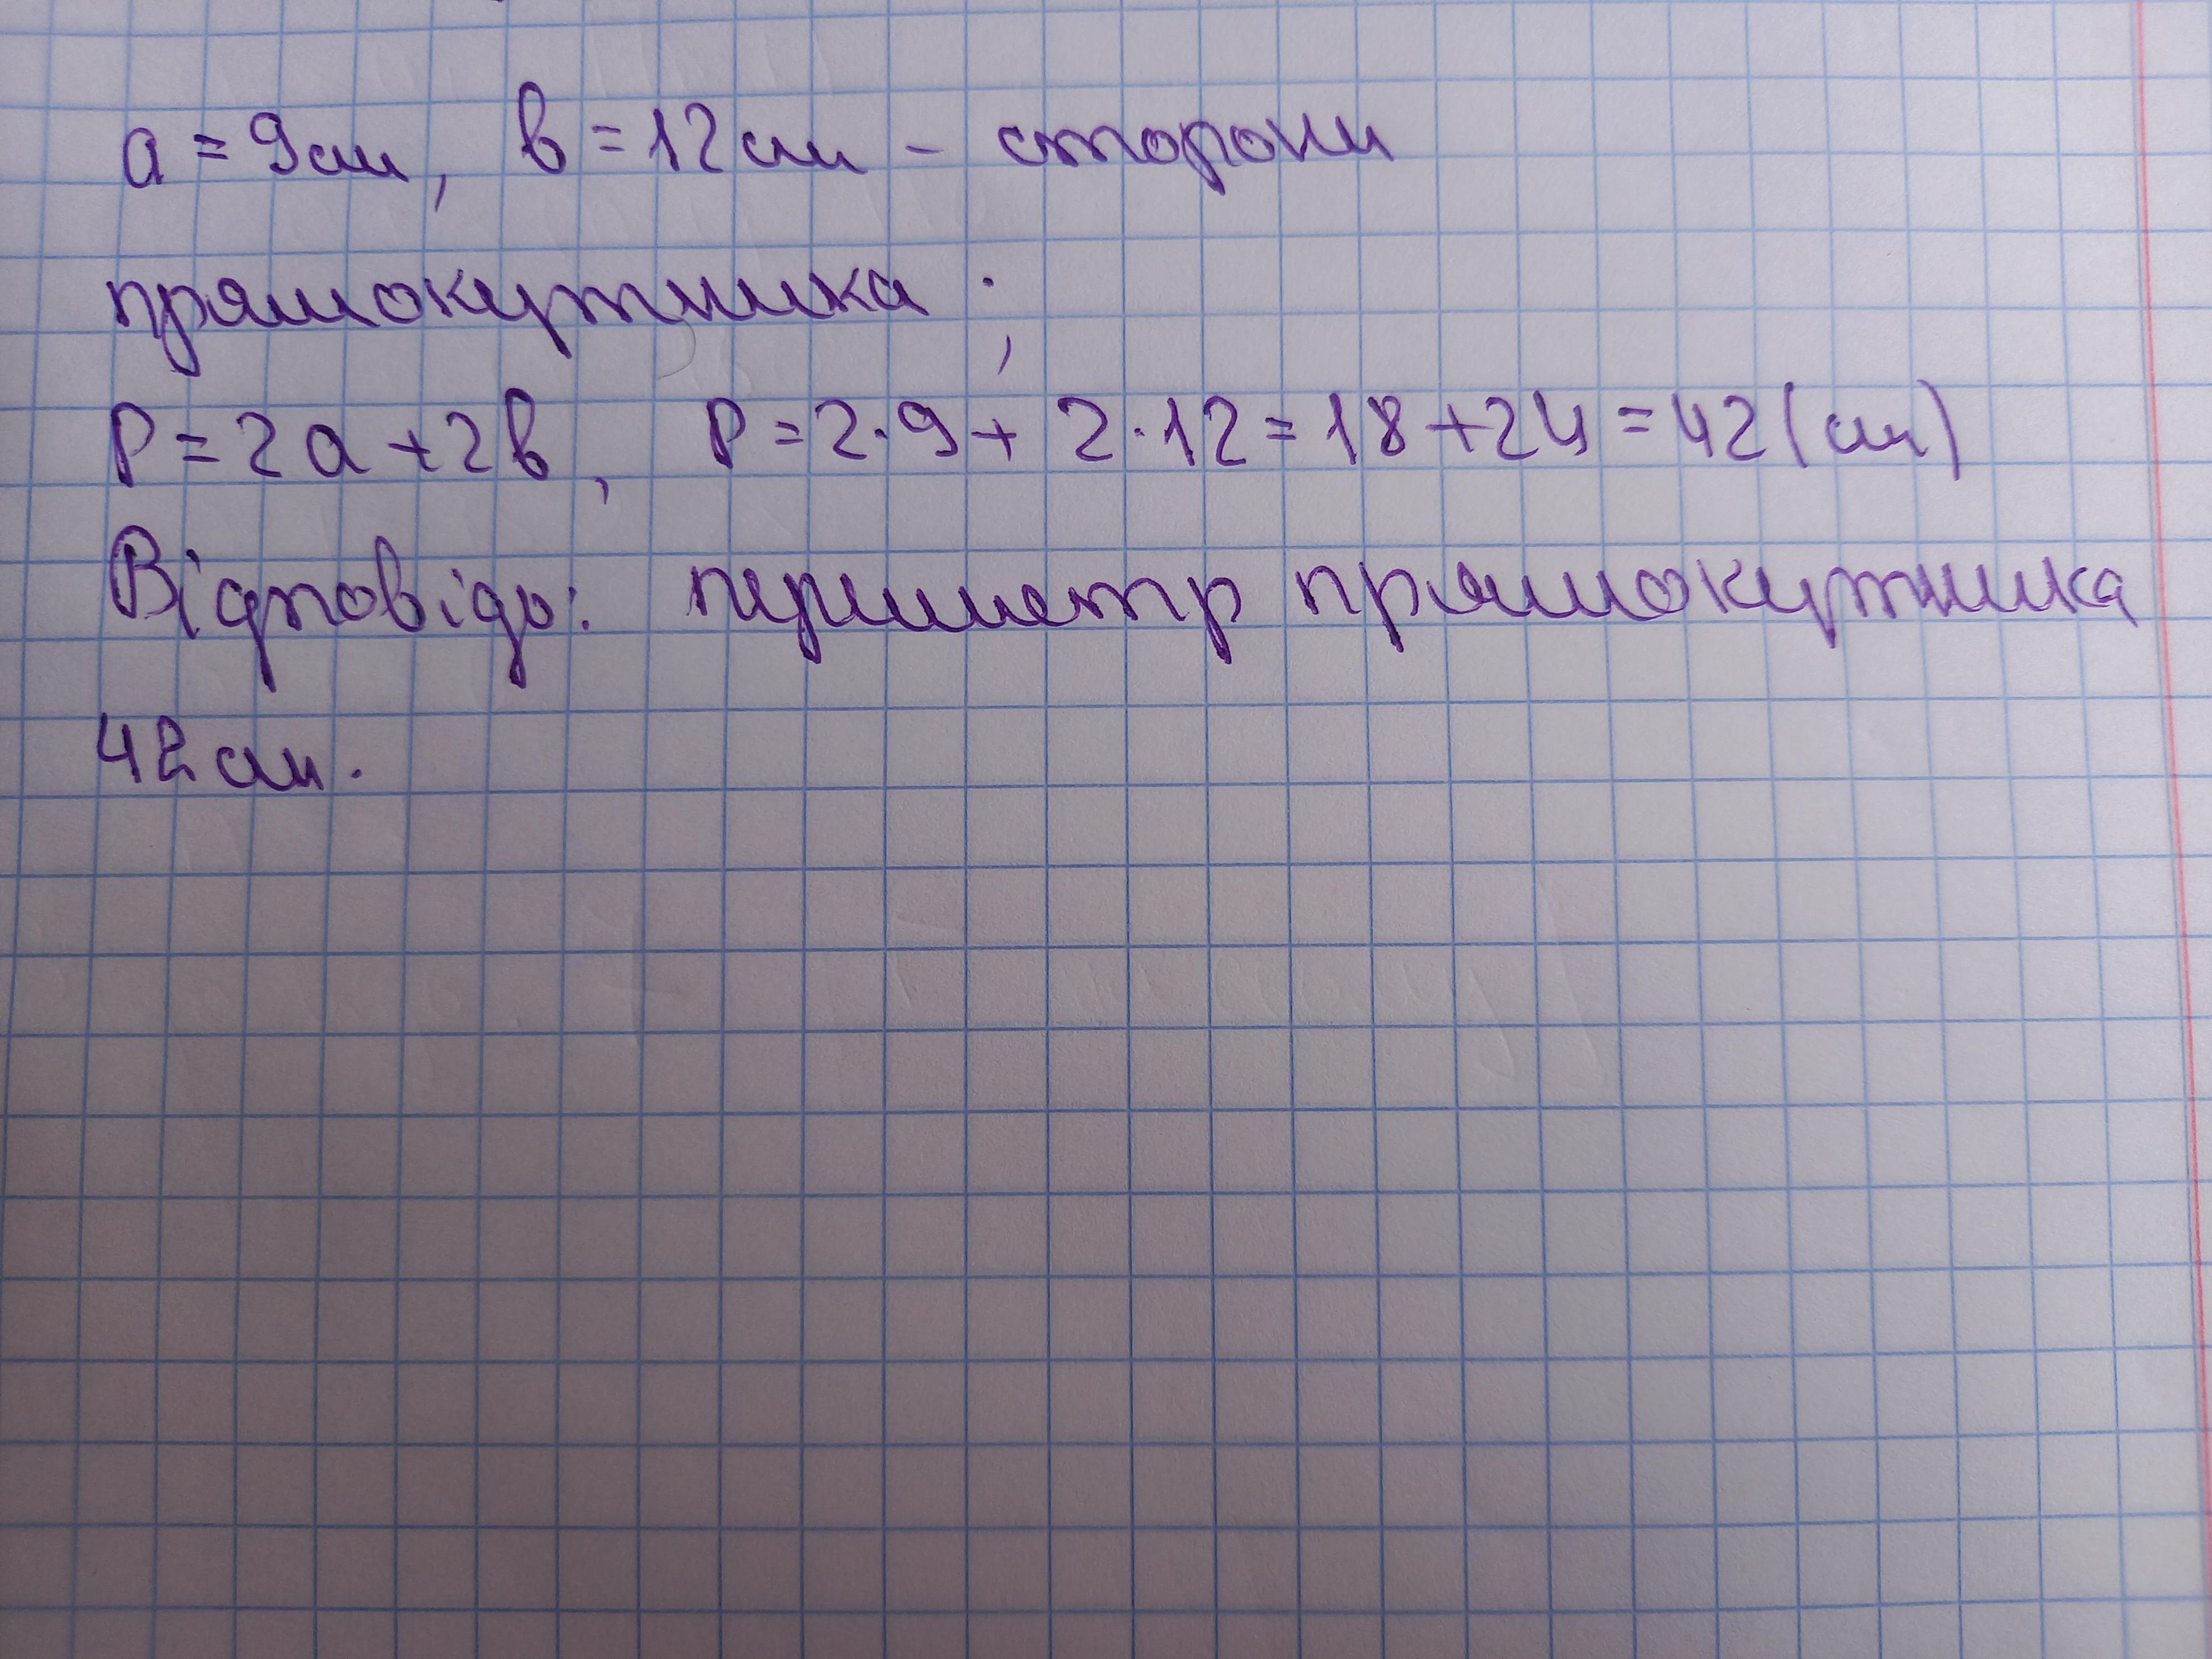 a = 9 см, b = 12 см - сторони
прямокутника ;
P = 2a + 2b, P = 2·9 + 2·12 = 18 + 24 = 42 (см)
Відповідь: периметр прямокутника
42 см.